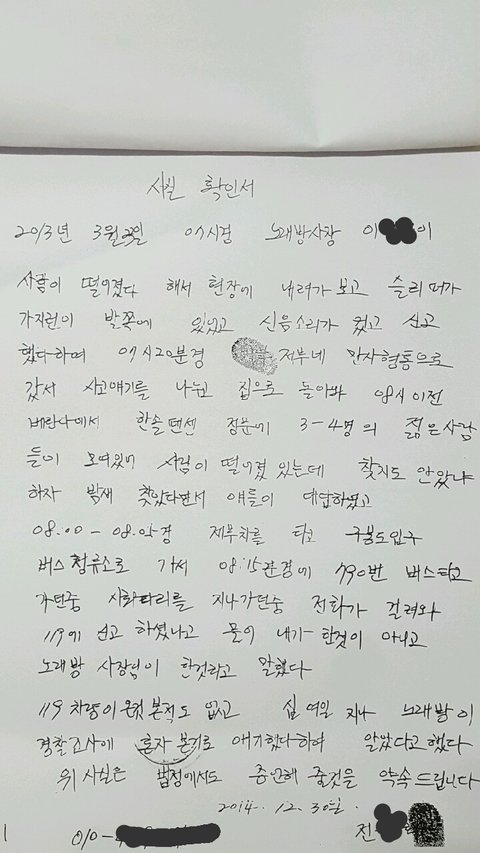 사실 확인서
2013년 3월 23일 07시경 노래방사장 이 이
사람이 떨어졌다 해서 현장에 내려가 보고 슬리퍼가
가지런이 발쪽에 있었고 신음소리가 있었고 신고
했다하며 07시20분경 제부네 만사형통으로
갔서 사고얘기를 나눈고 집으로 돌아와 08시 이전
베란사에서 한솔덴센 정문에 3-4명의 젊은사람
들이 모여있어 사람이 떨어졌 있는데 찾지도 안았냐
하자 밤새 찾았다면서 얘들이 대답하였고
08.00 - 08.05경 제부차를 타고 구불도입구
버스정류소로 가서 08:15분경에 790번 버스타고
가던중 시화다리를 지나가던중 전화가 걸려와
119에 신고 하셨냐고 물어 내가 한것이 아니고
노래방 사장님이 한것라고 말했다
119 차량이 온것 본적도 없고 십여일 지나 노래방이
경찰조사에 혼자 본거로 얘기했다하여 알았다고했다
위 사실은 법정에서도 증언해 줄것을 약속드립니다
2014. 12. 30일.
010- 전